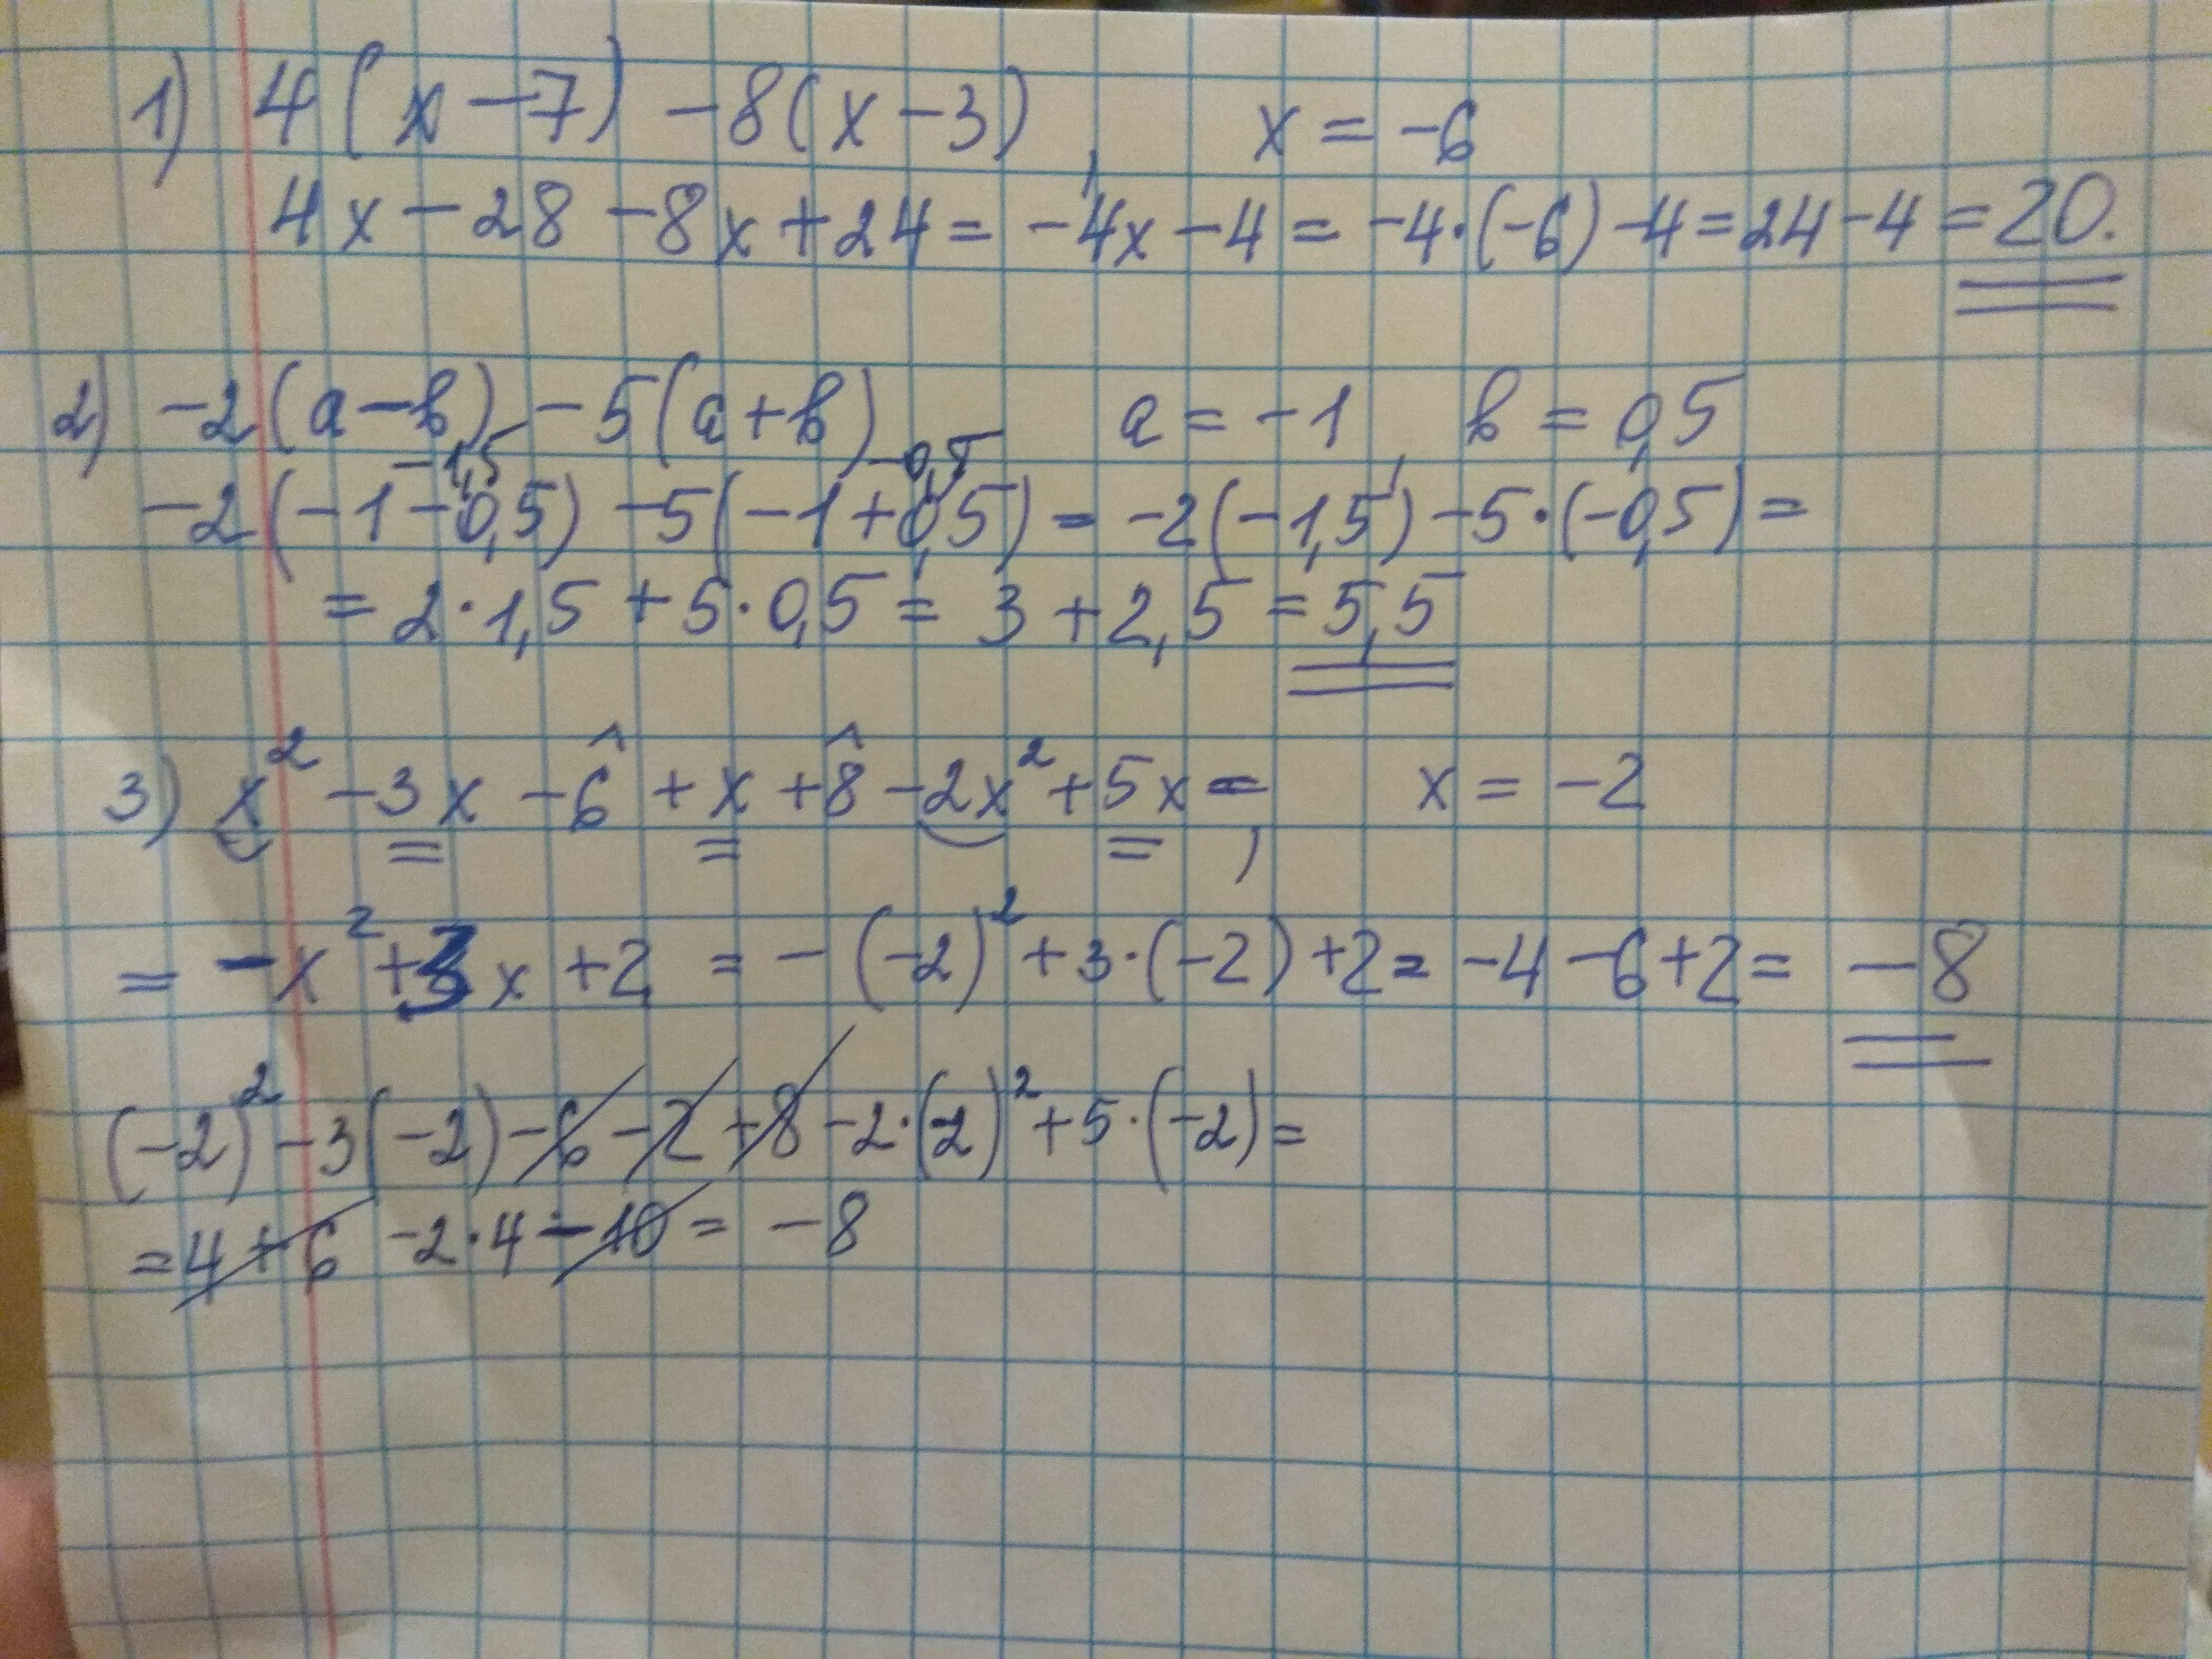 1) 4(x-7) -8(x-3), x = -6
4x-28-8x+24= -4x-4= -4·(-6)-4=24-4=20.
2) -2(a-b) -5(a+b), a=-1 b=0,5
-1,5 -0,5
-2(-1-0,5) -5(-1+0,5)= -2(-1,5)-5·(-0,5)=
= 2·1,5+5·0,5= 3+2,5=5,5
3) x²-3x-6+x+8-2x²+5x=, x=-2
= -x²+3x+2 = -(-2)²+3·(-2)+2= -4-6+2= -8
(-2)²-3(-2)-6-2+8-2·(2)²+5·(-2)=
=4+6 -2·4-10= -8